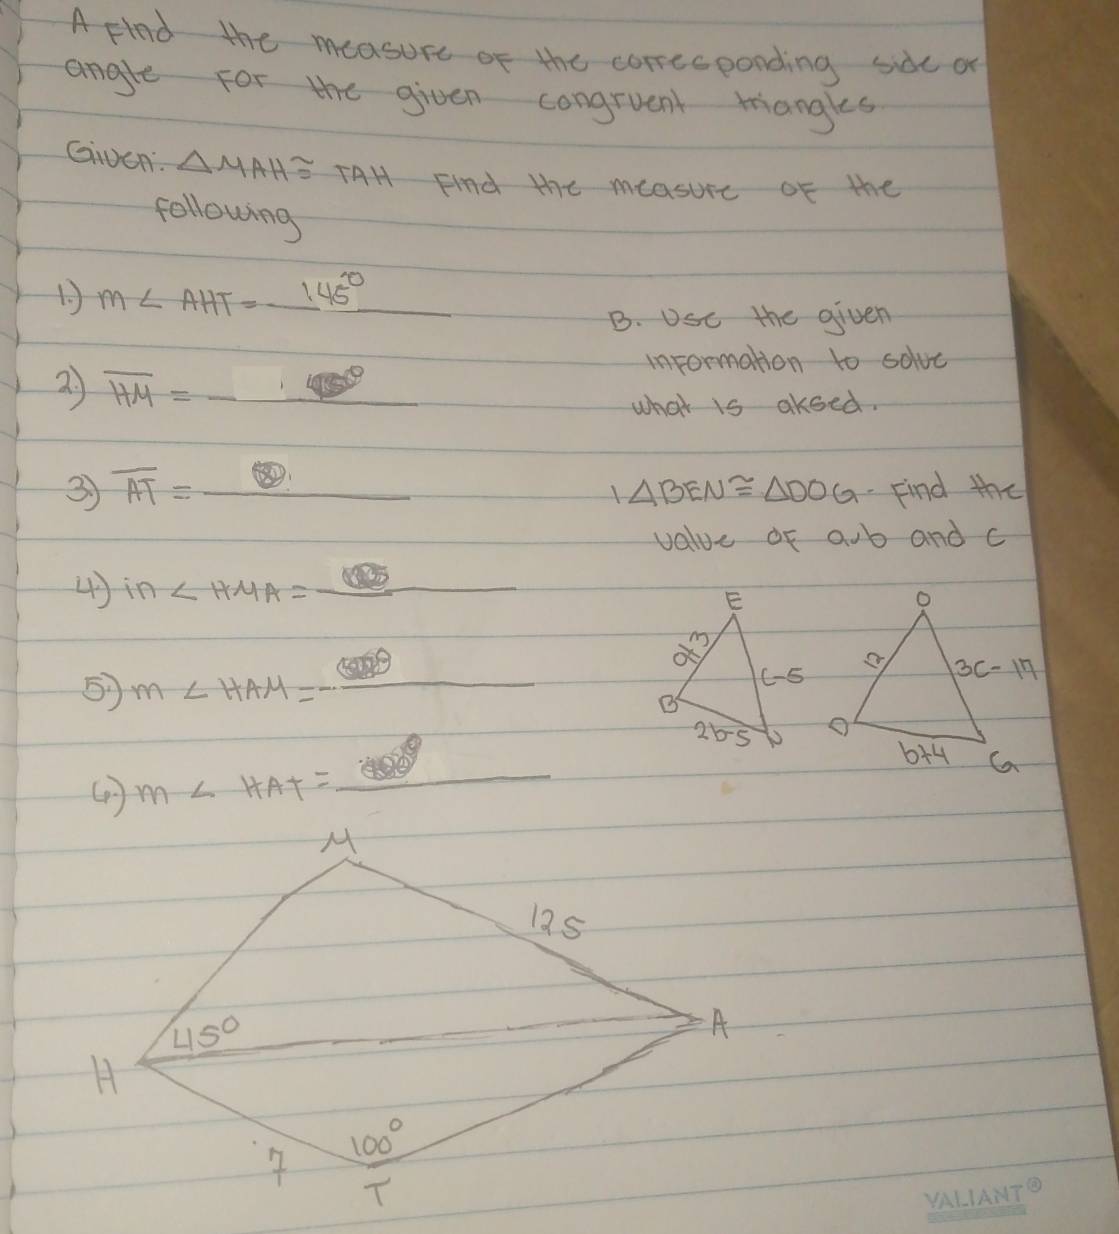 A Find the measure of the corresponding side or
angle For the given congruent triangles.
Given: △MAH ≅ TAH Find the measure of the
following
1.) m∠ AHT = 145°
2.) HM =
3.) AT =
4.) in ∠ HMA =
5.) m ∠ HAM =
6.) m ∠ HAT =
B. Use the given
information to solve
what is aksed.
1 △BEN ≅ △DOG - Find the
value of a,b and c
E
c-5
B
2b-5
N
O
12
3c-17
D
b+4
G
M
125
45°
A
H
7
100°
T
VALIANT®